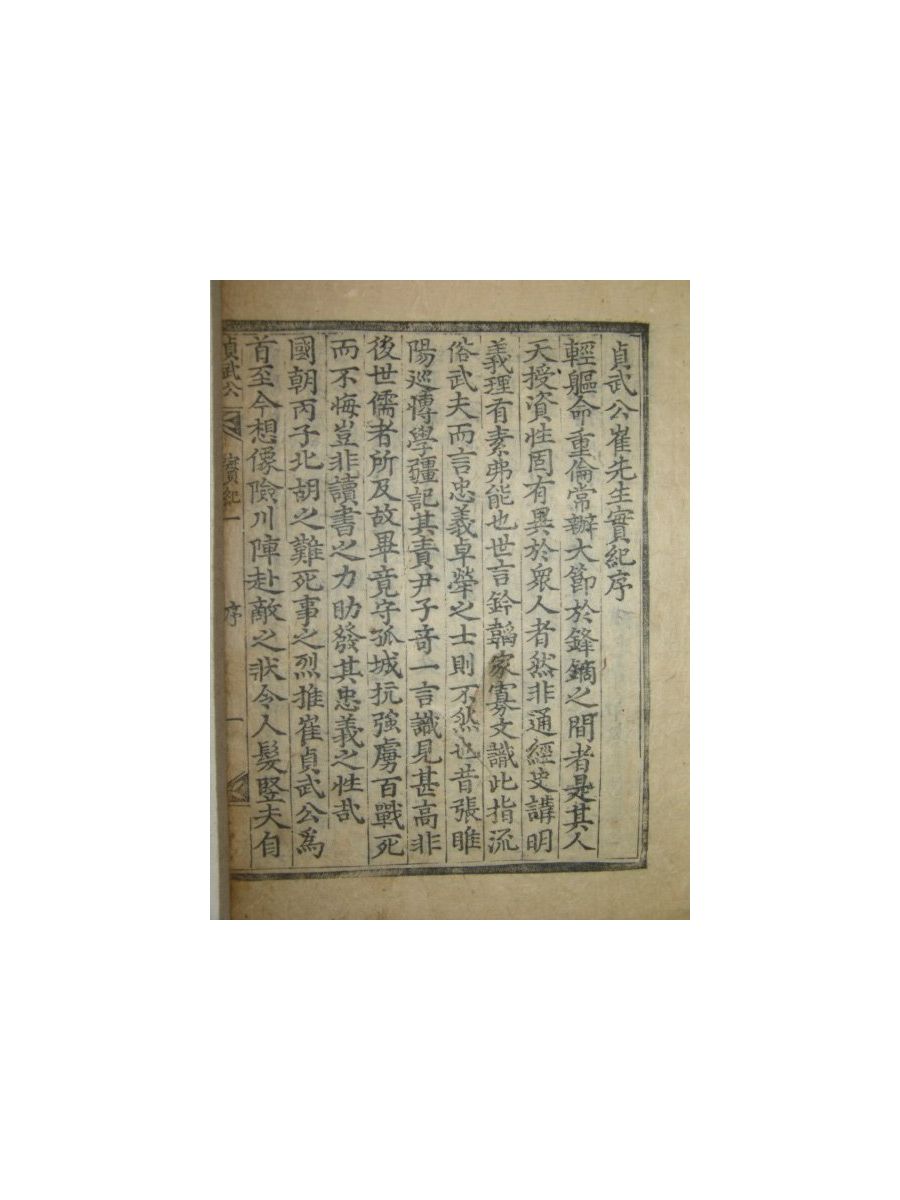 貞武公崔先生實紀序
輕軀命重倫常辦大節於鋒鏑之間者是其人
天授資性固有異於衆人者然非通經史講明
義理有素弗能也世言鈐韜家寡文識此指流
俗武夫而言忠義卓犖之士則不然也昔張睢
陽巡愽學疆記其責尹子竒一言識見甚高非
後世儒者所及故畢竟守孤城抗強虜百戰死
而不悔豈非讀書之力助發其忠義之性㢤
國朝丙子北胡之難死事之烈推崔貞武公為
首至今想像險川陣赴敵之狀令人髮竪夫自
貞武公 實紀一 序 一